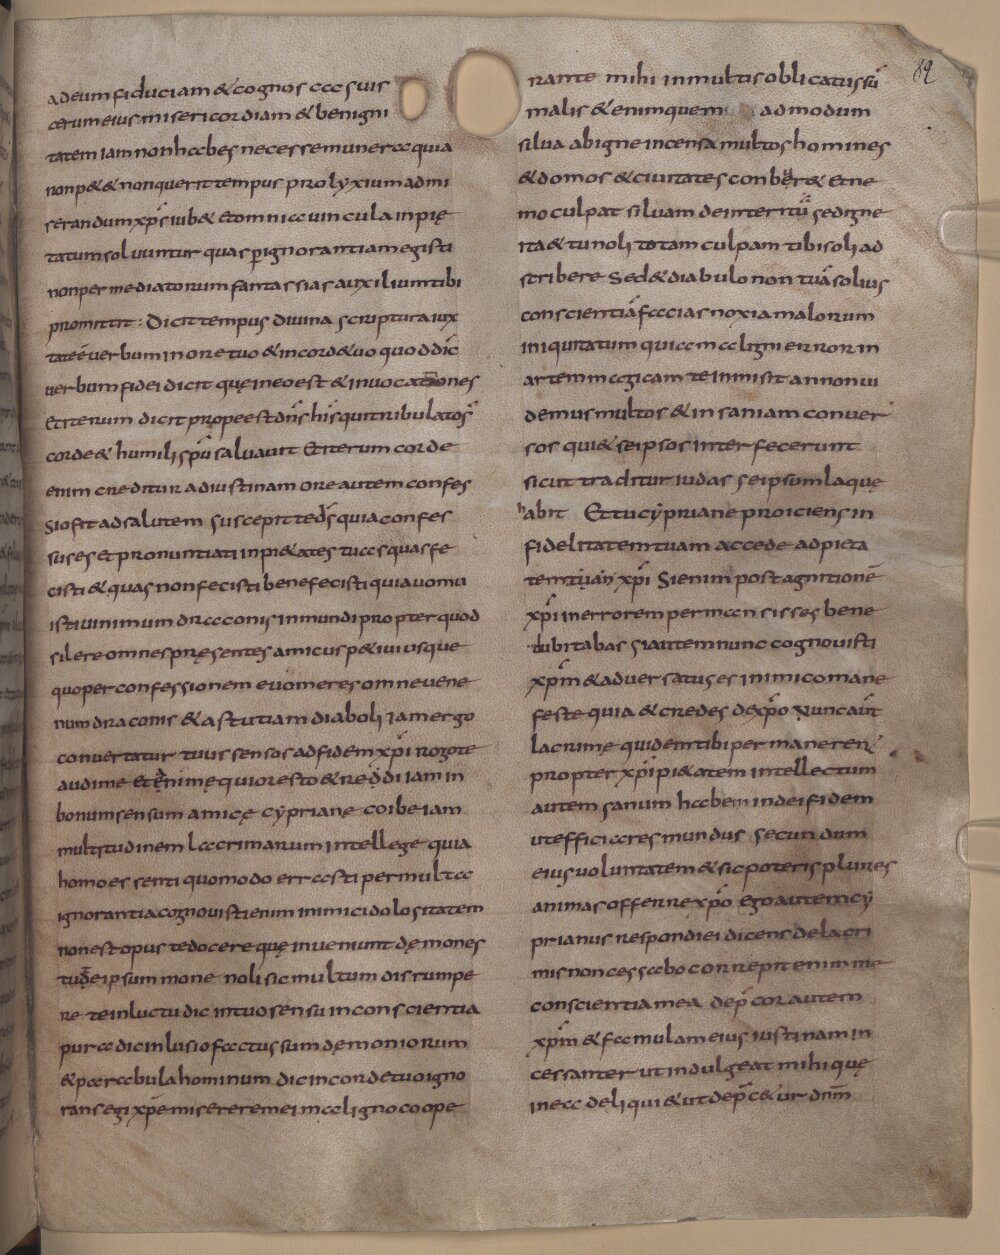 82
ad eum fiduciam & cognoscas suis
cerum eius misericordiam & benigni
tatem iam non habes necesse munera quia
non p&& non querit tempus prolyxium ad mi
serandum xp̄s iub& & omnia vincula inpię
tatum soluuntur quas ꝑ ignorantiam egisti
non per mediatorum fantassias auxilium tibi
promittit: dicit tempus divina scriptura iux
tate ē verbum in ore tuo & in corde &uo quod dic̄
verbum fidei dicit quę in eo est & invocationes
Et iterum dicit prope est dn̄s his qui tribulatos̄
corde & humili sp̄u salvavit Et iterum corde
enim creditur ad iustinam ore autem confes
sio fit ad salutem suscepit te ds̄ quia confes
sus es et pronuntiati inpi&ates tuas quas fe
cisti & quas non fecisti bene fecisti quia vomu
isti vinimum draconis in mundi propter quod
silere omnes pręsentes amicus p&ivi usque
quo per confessionem evomeres omne vene
num draconis & astutiam diaboli iam ergo
convertatur tuus sensos ad fidem xp̄i rogo te
audi me et enim ę qui oresto & reddi iam in
bonum sensum amicę cypriane coibe iam
multitudinem lacrimarum intellege quia
homo es senti quomodo errasti per multa
ignorantia cognovisti enim inimici dolositatem
non est opus te docere quę inveniunt dęmones
tu de ipsum mone noli sic multum disrumpe
re te in luctu dic in tuo sensu in conscientia
pura dic inlusio factus sum dęmoniorum
& parabula hominum dic in corde tuo igno
rans egi xp̄e miserere mei maligno coope
rante mihi in multis oblicatus sū
malis & enim quem ad modum
silva ab igne incensa multos homines
& domos & civitates conber& Et ne
mo culpat silvam de interitū sed igne
ita & tu noli totam culpam tibi soli ad
scribere Sed & diabulo non tuā solius
conscientiā facias noxia malorum
iniquitatum qui a maligni error in
artem magicam te inmisit an non vi
demus multos & in saniam conver
sos qui & se ipsos interfecerunt
sicut traditur iudas se ipsum laquę
habit Et tu cypriane proiciens in
fidelitatem tuam accede ad pieta
tem tuam xp̄i Si enim post agnitionē
xp̄i in errorem permansisses bene
dubitabas si autem nunc cognovisti
xp̄m & adversatus es inimico mane
feste quia & credes de xp̄o Nunc aūt
lacrime quidem tibi permanere
propter xp̄i pi&atem intellectum
autem sanum habem in dei fidem
ut efficiares mundus secundum
eius voluntatem & sic poteris plures
animas offerre xp̄o ego autem cy
prianus respondi ei dicens de lacri
mis non cessabo correpit enim me
conscientia mea dep̄cor autem
xp̄m & famulam eius iustinam in
cessanter ut indulgeat mihi quę
in ea deliqui & ut dep̄c&ur dn̄m